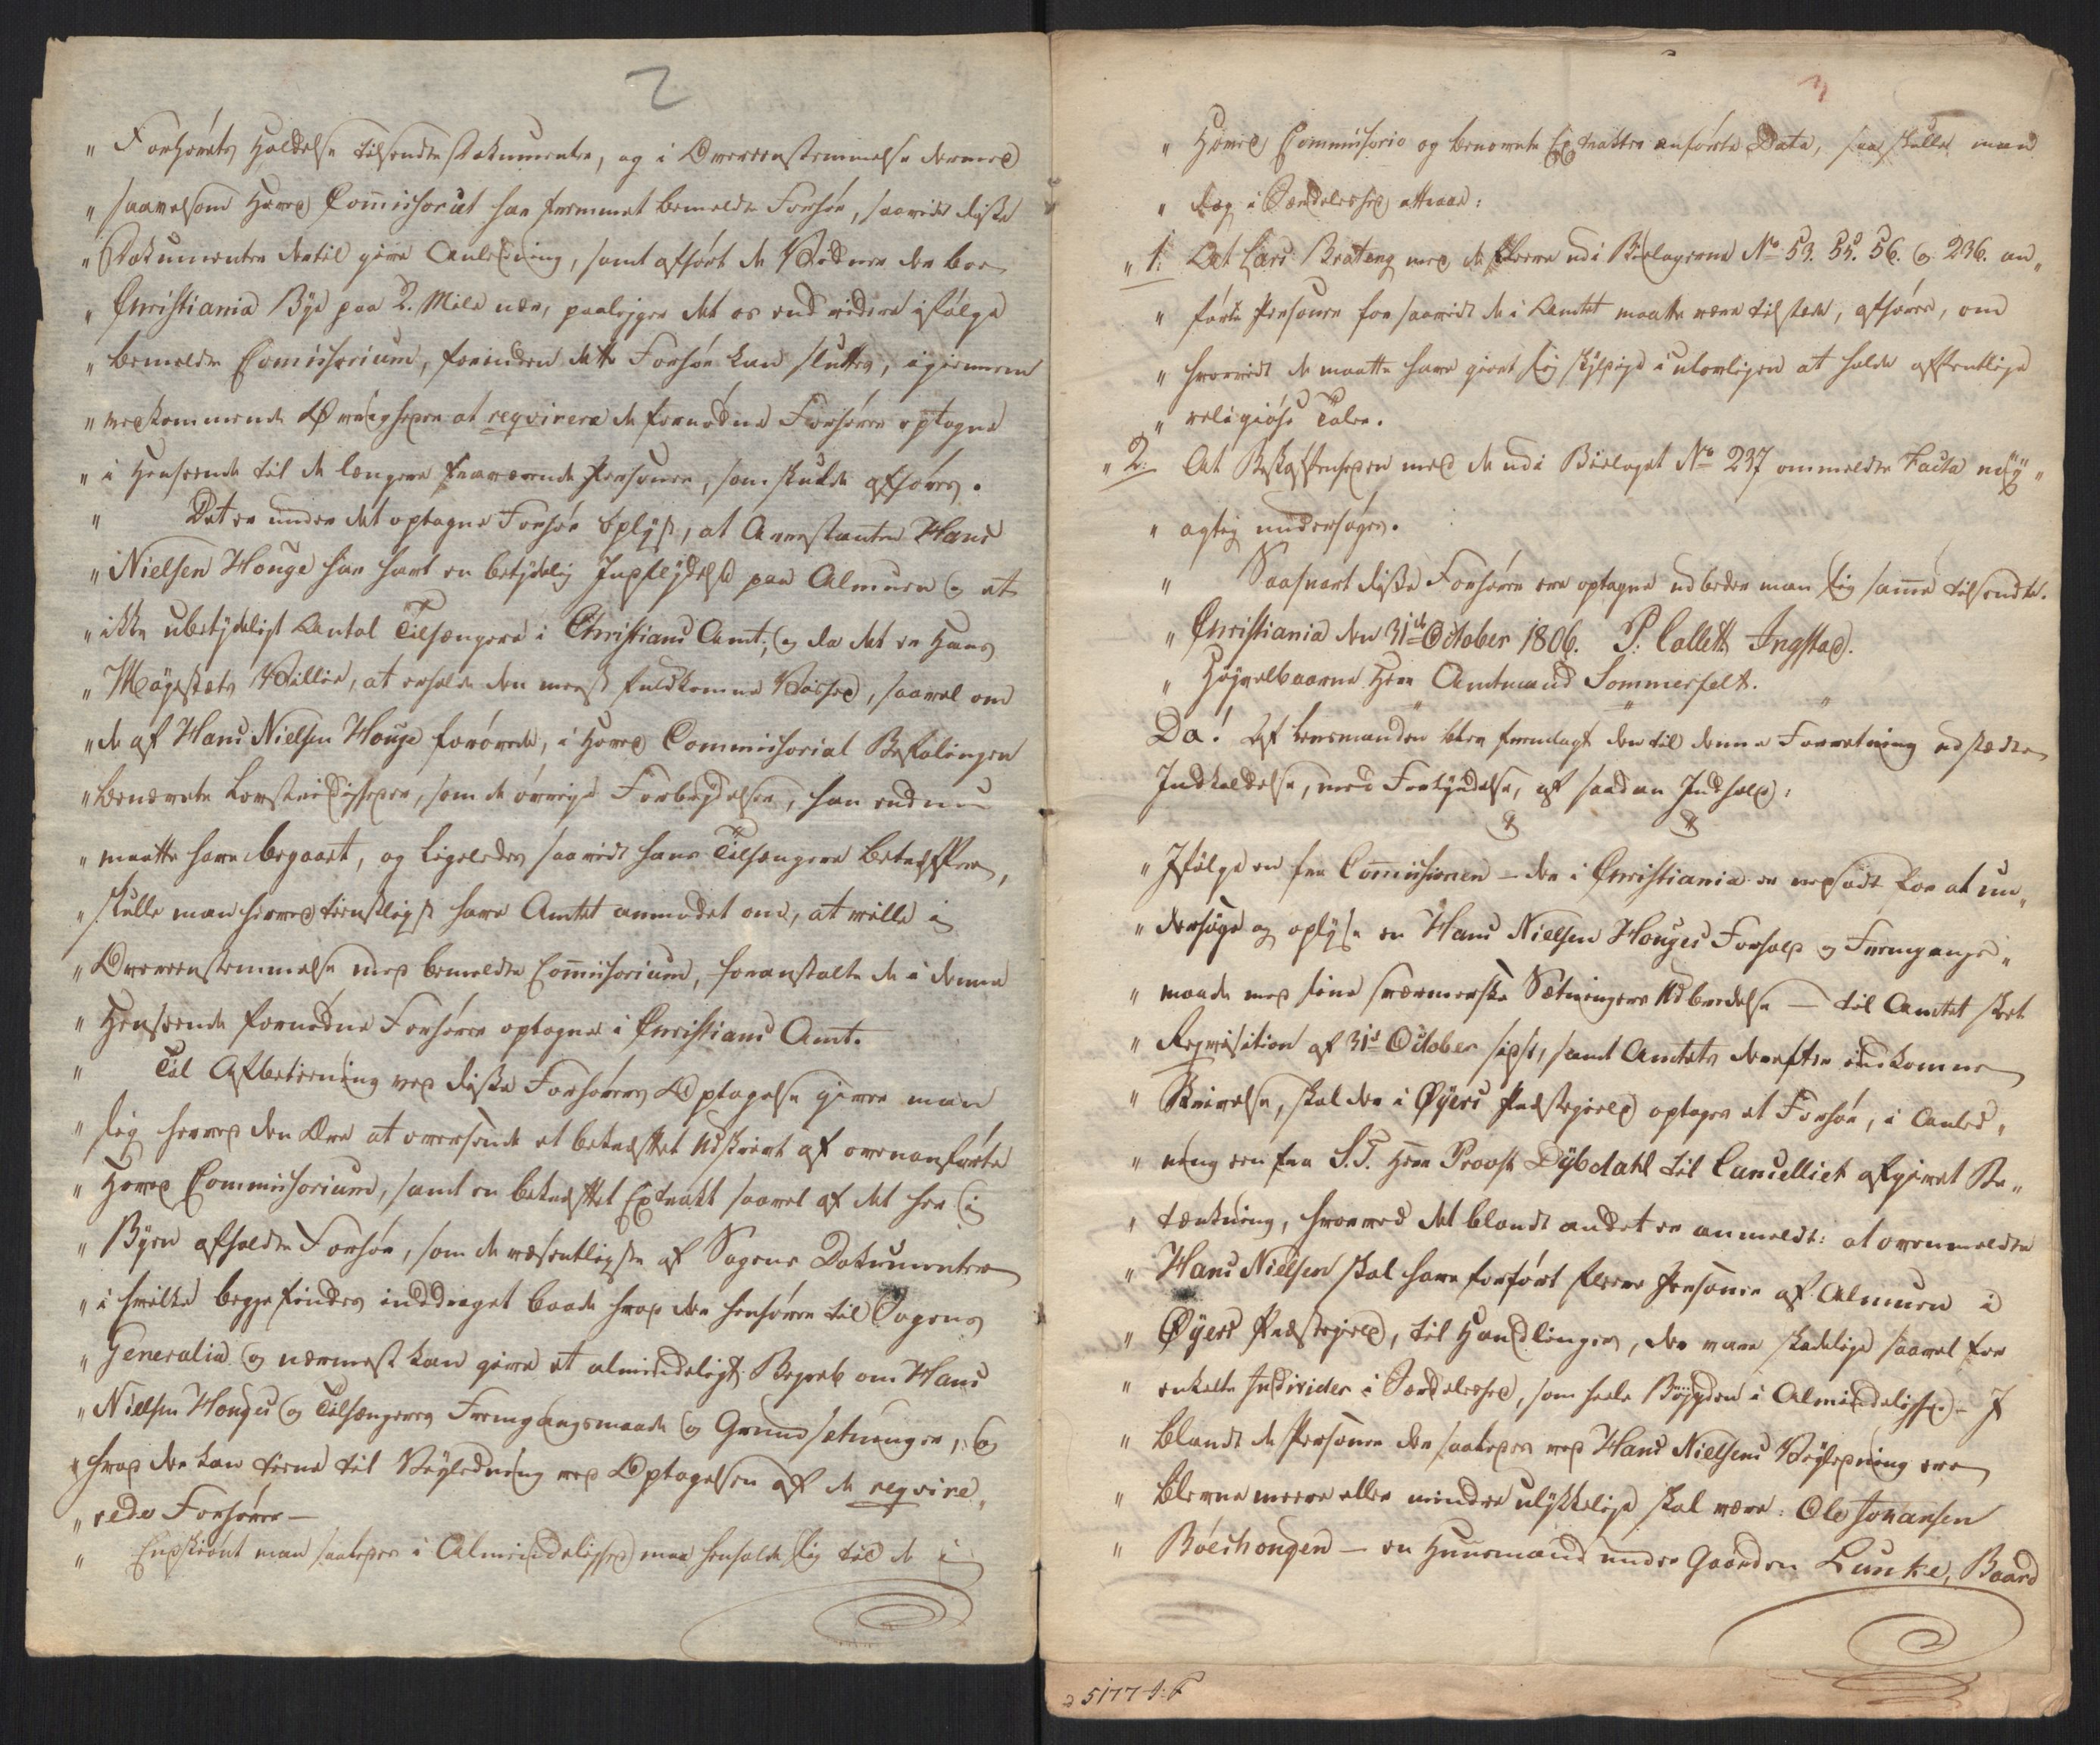 2
" Forhørets Holdelse tilsendte Dokumenter, og i Overeenstemmelse dermed
" saavelsom Høved Com̅issoriet har fremmet bemeldte Forhør, saavidt disse
" Dokumenter dertil give Anledning, samt afhørt de Vidner der boe
" Christiania Bye paa 2. Mile nær, paaligger det os end videre ifølge
" bemeldte Com̅issorium, forinden dette Forhør kan sluttes, igiennem
" vedkommende Øvrigheder at reqvirere de fornødne Forhører optagne
" i Henseende til de længere fraværende Personer, som skulde afhøres.
" Det er under det optagne Forhør oplyst, at Arrestanten Hans
" Nielsen Houge har havt en betydelig Indflydelse paa Almuen og et
" ikke ubetydeligt Antal Tilhængere i Christians Amt; og da det er Hans
" Majestæts Villie, at erholde den meest fuldkomne Vished, saavel om
" de af Hans Nielsen Houge forøvede, i Høved Commissorial Befalingen
" benævnte Lovstridigheder, som de øvrige Forbrydelser, han endnu
" maatte have begaaet, og ligeledes saavidt hans Tilhængere betræffer,
" skulle man herved tienstligst have Amtet anmodet om, at ville i
" Overeenstemmelse med bemeldte Com̅issorium, foranstalte de i denne
" Henseende fornødne Forhører optagne i Christians Amt.
" Til Afbetiening ved disse Forhørers Optagelse giver man
" sig herved den Ære at oversende et bekræftet Udskrivt af ovenanførte
" Høved Commissorium, samt en bekræftet Extrakt saavel af det her i
" Byen afholdte Forhør, som de væsentligste af Sagens Dokumenter
" i hvilke begge findes inddraget baade hvad der henhører til Sagens
" Generalia og nærmest kan give et almindeligt Begreb om Hans
" Nielsen Houges og Tilhængeres Fremgangsmaade og Grundsætninger, og
" hvad der kan tiene til Vejledning ved Optagelsen af de reqvire„
" rede Forhører —
" Endskiønt man saaledes i Almindelighed maa henholde sig til de i
" Høved Commissorio og benævnte Extrakter anførte Data, saa skulle man
" dog i Særdeleshed attraae:
" 1: At Lars Bratteng med de fleere udi Bielagerne No 53. 55. 56. og 236. an„
" førte Personer forsaavidt de i Amtet maatte være tilstæde, afhøres, om
" hvorvidt de maatte have giort sig skyldige i ulovligen at holde offentlige
" religiøse Taler.
" 2: At Beskaffenheden med de udi Bielaget No 237 ommeldte Facta nøy„
" agtig undersøges.
" Saasnart disse Forhører ere optagne udbeder man sig sam̅e tilsendte.
" Christiania den 31te October 1806. P. Collett Ingstad.
" Høyvelbaarne Herr Amtmand Sommerfelt.
Da! Af Lensmanden blev fremlagt den til denne Forretning udstædte
Indkaldelse, med Forkyndelse, af saadan Indhold:
" Ifølge en fra Com̅issionen — der i Christiania er nedsadt for at un„
" dersøge og oplyse en Hans Nielsen Houges Forhold og Fremgangs„
" maade med sine sværmerske Sætningers Udbredelse — til Amtet skeet
" Reqvisition af 31te October sidst, samt Amtets derefter indkomne
" Skrivelse, skal der i Øyers Præstegield optages et Forhør, i Anled„
" ning een fra S. T. Herr Provst Dybdahl til Cancelliet afgivet Be„
" tænkning, hvorved det blandt andet er anmeldt: at ovenmeldte
" Hans Nielsen skal have forført fleere Personer af Almuen i
" Øyers Præstegield, til Handlinger, der vare skadelige saavel for
" enkelte Individer i Særdeleshed, som heele Bøygden i Almindelighed. I
" blandt de Personer der saaledes ved Hans Nielsens Vejledning ere
" blevne meere eller mindre ulykkelige skal være: Ole Johansen
" Bøeshougen — en Huusmand under Gaarden Lunke, Baard
5177 J: F